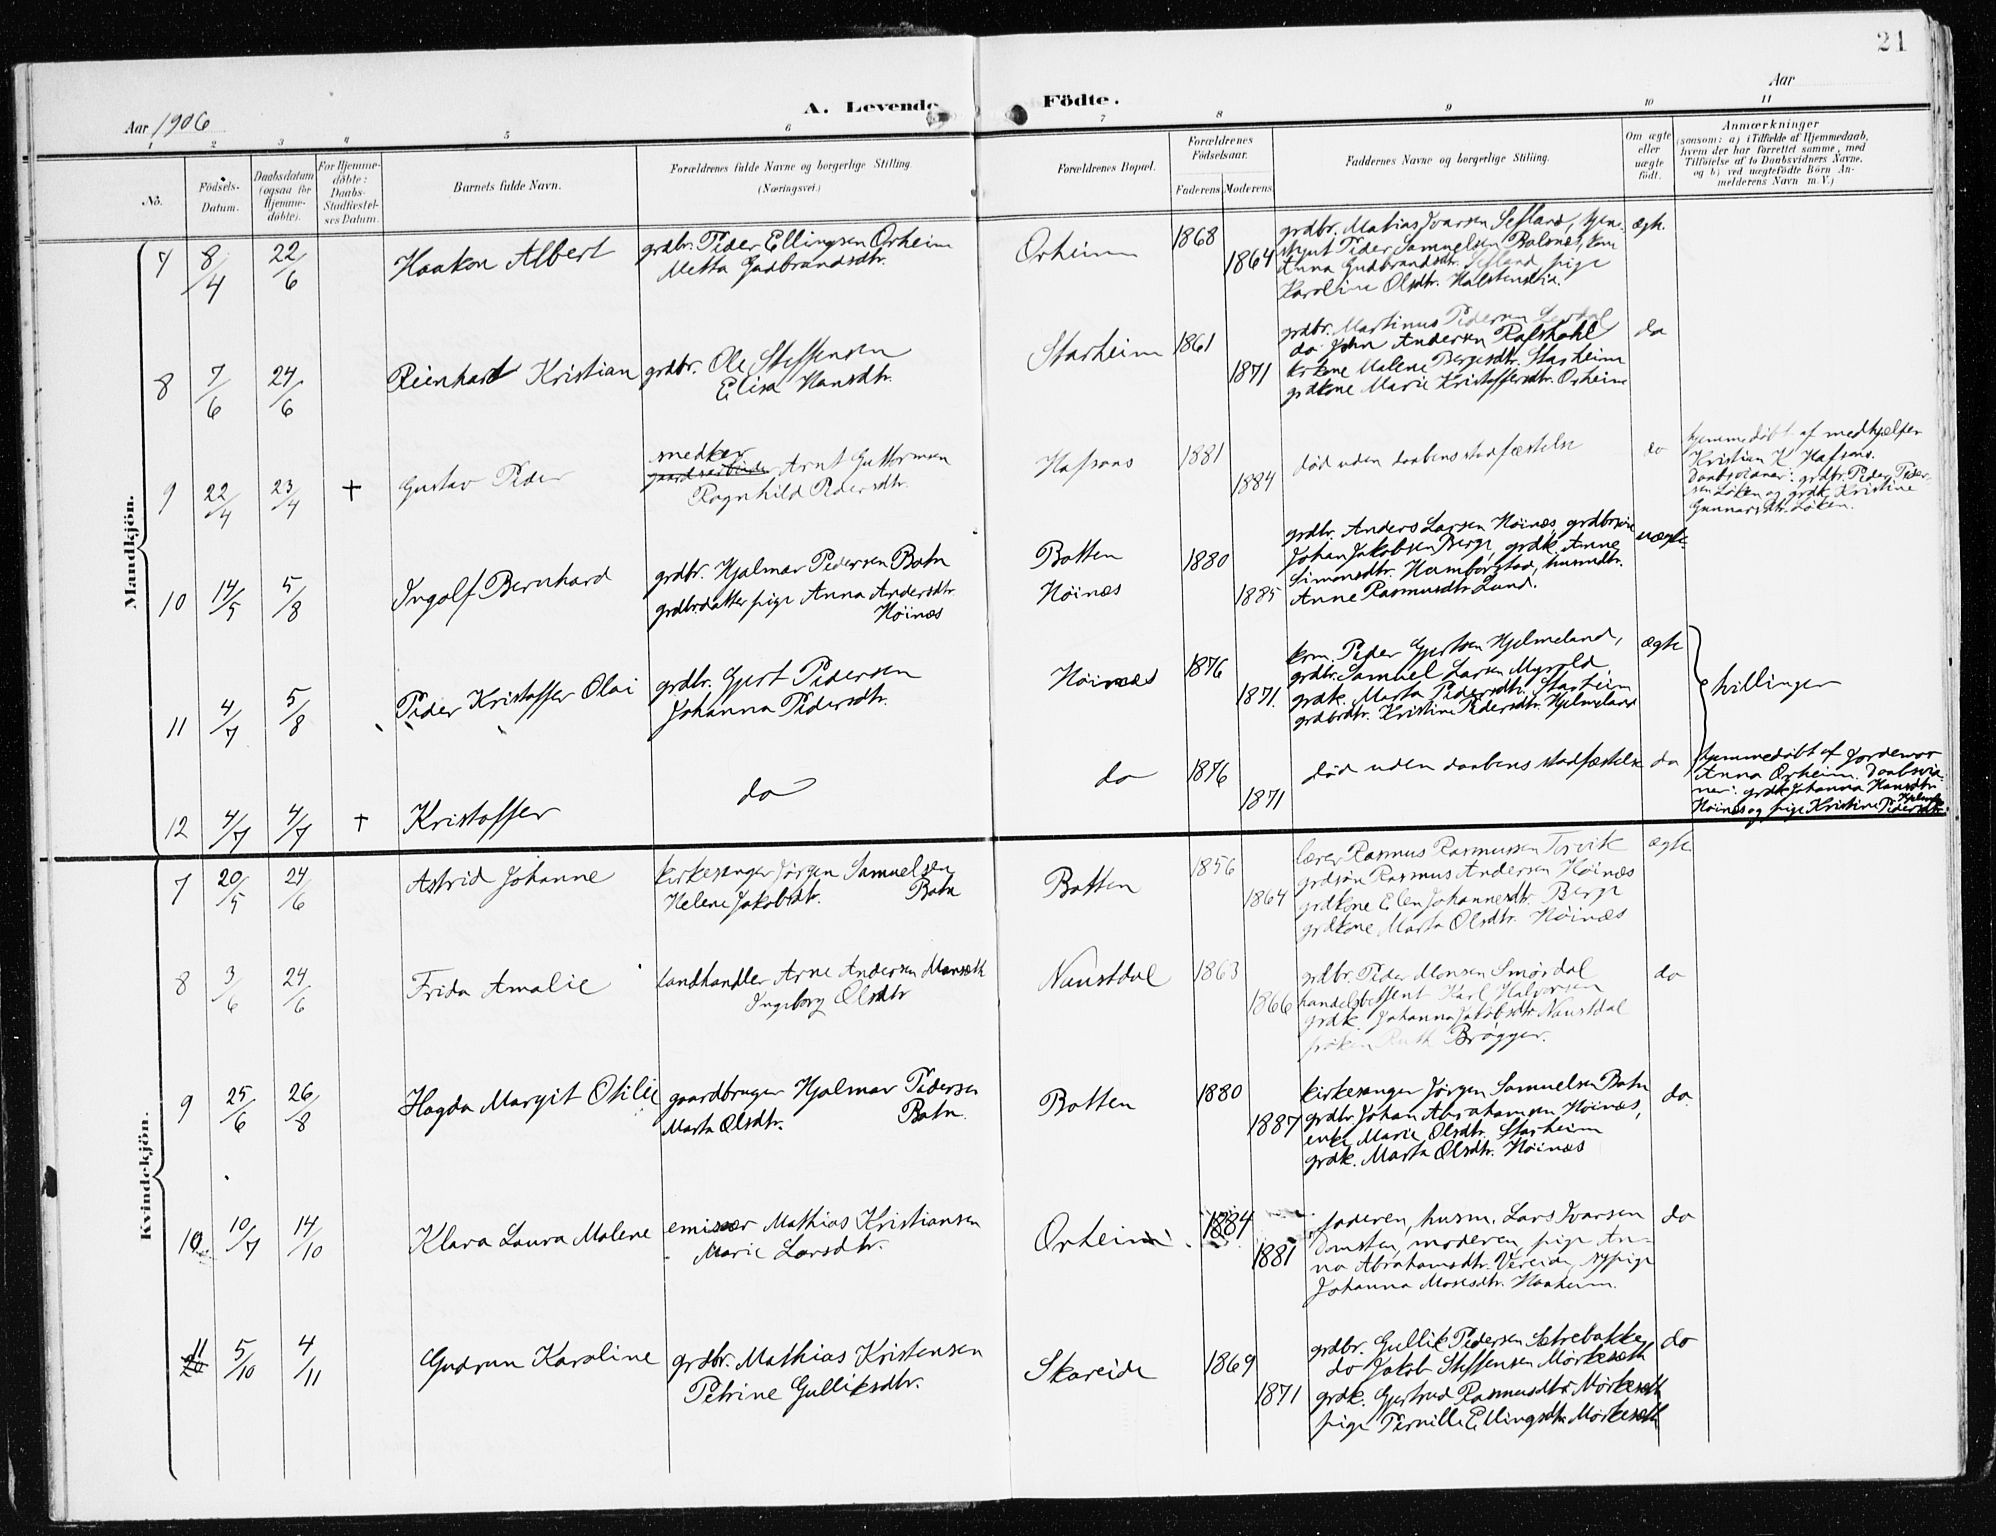 21
Aar 1906
A. Levende Födte.
Aar
1 2 3 4 5 6 7 8 9 10 11
No.
Födsels-Datum.
Daabsdatum (ogsaa for Hjemmedöbte).
For Hjemmedöbte: Daabs-Stadfæstelses Datum.
Barnets fulde Navn.
Forældrenes fulde Navne og borgerlige Stilling. (Næringsvei.)
Forældrenes Bopæl.
Forældrenes Födselsaar.
Faderens. Moderens.
Faddernes Navne og borgerlige Stilling.
Om ægte eller uægte födt.
Anmærkninger (saasom: a) i Tilfælde af Hjemmedaab, hvem der har forrettet samme, med Tilföielse af to Daabsvidners Navne, og b) ved uægtefödte Börn Anmelderens Navn m. V.)
Mandkjön.
7 8/4 22/6 Haakon Albert
grdbr. Peder Ellingsen Orheim
Metta Gudbrandsdtr.
Orheim 1868 1864
grdbr. Mathias Ivarsen Sefland,
Peder Samuelsen
Anna Gudbrandsdtr. Sefland pige
Karoline Olsdtr.
ægte.
8 7/6 24/6 Reinhard Kristian
grdbr. Ole Steffensen
Elisa Hansdtr.
Starheim 1861 1871
grdbr. Martinus Pedersen
do John Andersen Rafstahl
Malene Bergesdtr. Starheim
grdkone Marie Kristoffersdtr. Orheim
do
9 22/4 23/4 + Gustav Peder
medker
gaardsarbeider Arnt Guttormsen
Ragnhild Pedersdtr.
Hafsaas 1881 1884
död uden daabens stadfæstelse
do
hjemmedöbt af medhjælper
Kristian K Hafsaas.
Daabsvidner: grdbr. Peder Peder-
sen Løken og grdk. Kristine
Gunnarsdtr. Løken.
10 14/5 5/8 Ingolf Bernhard
grdbr. Hjalmar Pedersen Botn
grdbrdatter pige Anna Andersdtr.
Höinæs
Botten
Höinæs
1880 1885
grdbr. Anders Larsen Höinæs, grdbrsön
Johan Jakobsen Berge, grdk. Anne
Simonsdtr. Hamborstad, husmdtr.
Anne Rasmusdtr. Lund.
uægte.
11 4/7 5/8 Peder Kristoffer Olai
grdbr. Gjert Pedersen
Johanna Pedersdtr.
Höinæs 1876 1871.
krm. Peder Gjertsen Hjelmeland,
grdbr. Samuel Larsen Myrold,
grdk. Marta Pedersdtr. Starheim
grdbrdtr. Kristine Pedersdtr. Hjelmeland
ægte
tvillinger
12 4/7 4/7 + Kristoffer
do
do 1876 1871
död uden daabens stadfæstelse
do
hjemmedöbt af Jordemor
Anna Orheim. Daabsvid-
ner: grdk. Johanna Hansdtr.
Höinæs og pige Kristine Pedersdtr.
Kvindekjön.
7 20/5 24/6 Astrid Johanne
kirkesanger Jörgen Samuelsen
Helene Jakobsdtr. Botn
Botten 1856 1864
lærer Rasmus Rasmussen Torvik
grdsön Rasmus Andersen Höinæs
grdkone Elen Johannesdtr. Berge
grdkone Marta Olsdtr. Höinæs
ægte
8 3/6 24/6 Frida Amalie
landhandler Arne Andersen
Ingeborg Olsdtr
Naustdal 1863 1866
grdbr. Peder Monsen Smördal
handelsbetjent Karl Halvorsen
grdk. Johanna Jakobsdtr. Naustdal
fröken Ruth Brögger.
do
9 25/6 26/8 Hagda Margit Otilie
gaardbruger Hjalmar Pedersen
Marta Olsdtr. Botn.
Botten 1880 1887
kirkesanger Jörgen Samuelsen Botn
grdbr. Johan Abrahamsen Höinæs,
enke Marie Olsdtr. Starheim
grdk. Marta Olsdtr. Höinæs
do.
10 10/7 14/10 Klara Laura Malene
emisær Mathias Kristiansen
Marie Larsdtr.
Orheim 1884 1881
faderen, husm. Lars Ivarsen
Domsten, moderen, pige An-
na Abrahamsdtr. Vereide, sypige
Johanna Monsdtr. Haaheim.
do
11 5/10 4/11 Gudrun Karoline
grdbr. Mathias Kristensen
Petrine Gulliksdtr.
Skareide 1869 1871
grdbr. Gullik Pedersen Sætrebakke
do Jakob Steffensen Mörkesæth
grdk. Gjertrud Rasmusdtr. Mörkesæth
pige Pernille Ellingsdtr. Mörkesæth
do